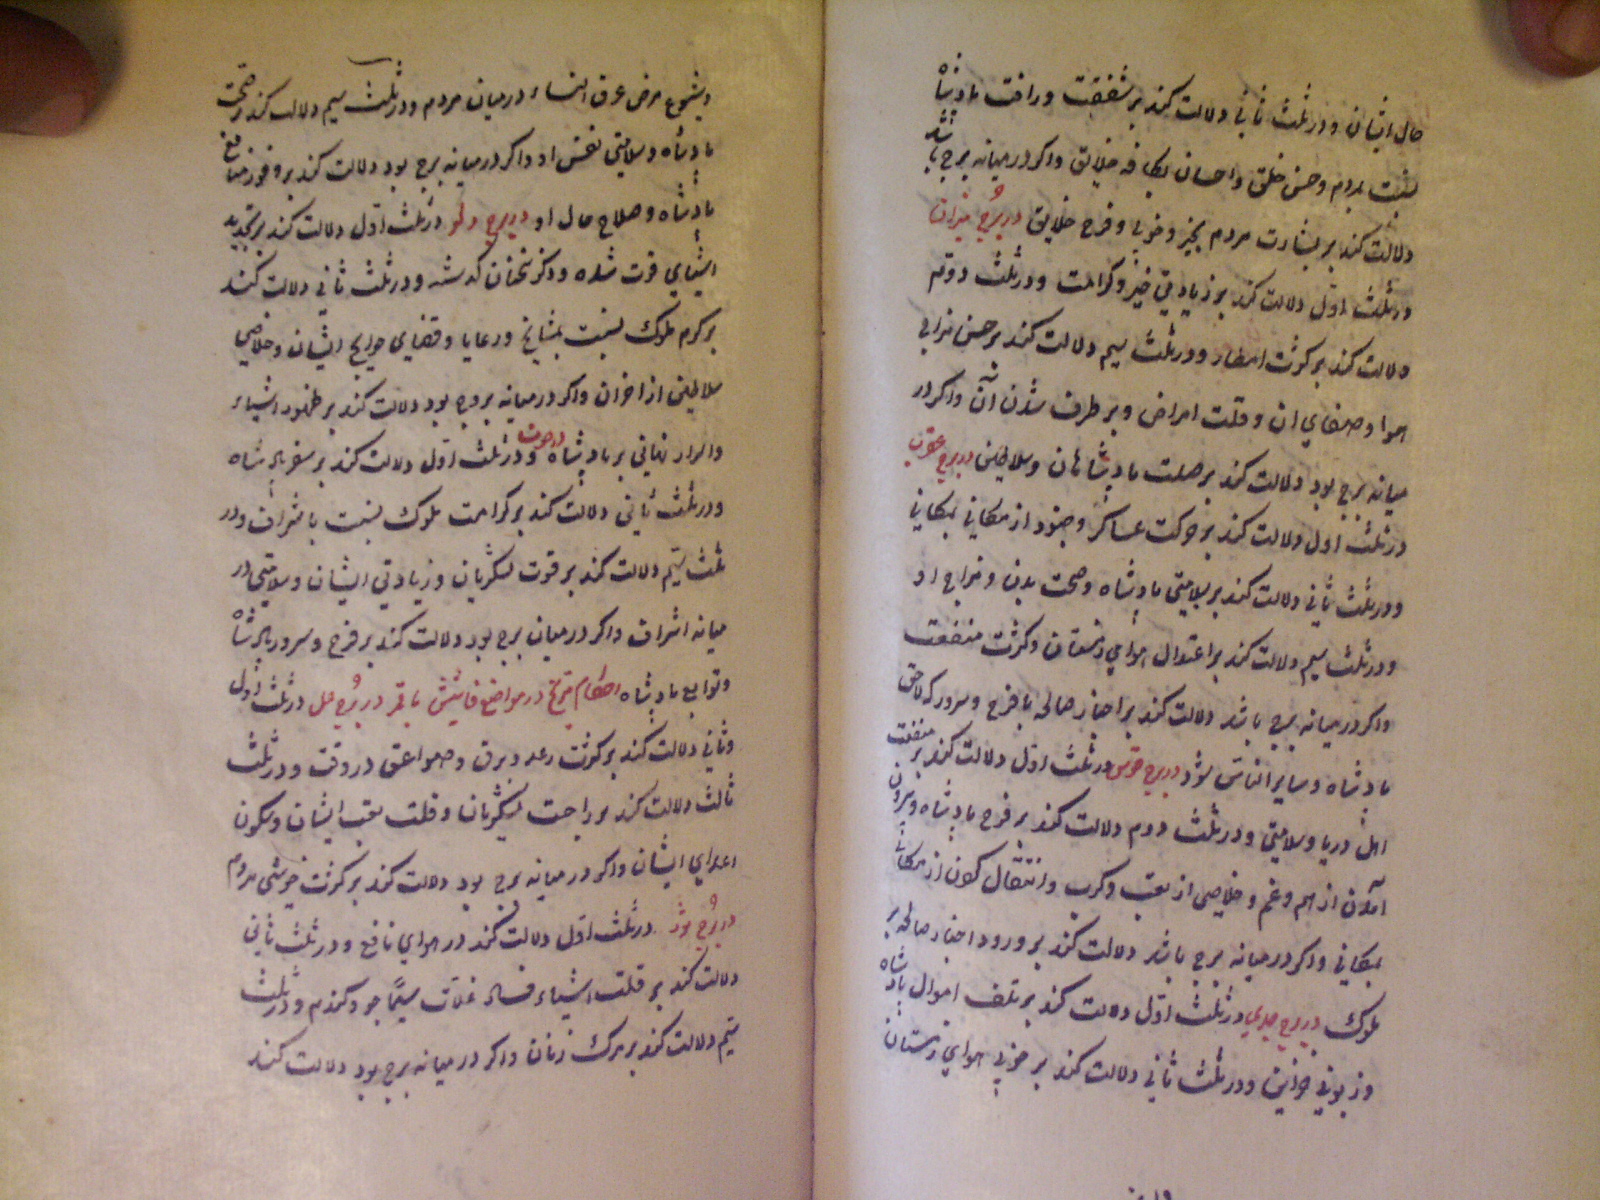 حال ایشان و در ثلث ثانی دلالت کند بر شفقت و رافت پادشاه
نسبت بمردم و حسن خلق و احسان بکافه خلایق و اکر در میانه برج باشد
دلالت کند بر بشارت مردم بخیر و خوبی و فرح خلایق در برج میزان
در ثلث اول دلالت کند بر زیادتی خیر و کرامت و در ثلث دویم
دلالت کند بر کثرت امطار و در ثلث سیم دلالت کند بر حسن مزاج
هوا و صفای ان و قلت امراض و بر طرف شدن آن و اکر در
میانه برج بود دلالت کند بر صلت پادشاهان و سلاطین در برج عقرب
در ثلث اول دلالت کند بر حرکت عساکر و جنود از مکانی بمکانی
و در ثلث ثانی دلالت کند بر سلامتی پادشاه و صحت بدن و مزاج او
و در ثلث سیم دلالت کند بر اعتدال هوای زمستان و کثرت منفعت
و اکر در میانه برج باشد دلالت کند بر اخبار صالحه با فرح و سرور که لاحق
پادشاه و سایر الناس شود در برج قوس در ثلث اول دلالت کند بر منفعت
اهل دریا و سلامتی و در ثلث دوم دلالت کند بر فرح پادشاه و بیرون
آمدن از هم و غم و خلاصی از تعب و کرب و انتقال کردن از مکانی
بمکانی و اکر در میانه برج باشد دلالت کند بر ورود اخبار صالحه بر
ملوک در برج جدی در ثلث اول دلالت کند بر تلف اموال پادشاه
و زبونی خزاین و در ثلث ثانی دلالت کند بر خوبی هوای زمستان
و شیوع مرض عرق النساء در میان مردم و در ثلث سیم دلالت کند بر صحت
پادشاه و سلامتی نفس او و اکر در میانه برج بود دلالت کند بر وفور منافع
پادشاه و صلاح حال او در برج دلو در ثلث اول دلالت کند بر تجدید
اشیای فوت شده و ذکر سخنان کذشته و در ثلث ثانی دلالت کند
بر کرم ملوک نسبت بمشایخ و رعایا و قضای حوایج ایشان و خلاصی
سلاطین از احزان و اکر در میانه برج بود دلالت کند بر ظهور اشیاء
و اسرار نهانی بر پادشاه در حوت و در ثلث اول دلالت کند بر سفر پادشاه
و در ثلث ثانی دلالت کند بر کرامت ملوک نسبت باشراف و در
ثلث سیم دلالت کند بر قوت لشکریان و زیادتی ایشان و سلامتی در
میانه اشراف و اکر در میان برج بود دلالت کند بر فرح و سرور پادشاه
و توابع پادشاه احکام مریخ در مواضع با قمر در برج حمل در ثلث اول
و ثانی دلالت کند بر کثرت رعد و برق و صواعق در وقت و در ثلث
ثالث دلالت کند بر راحت لشکریان و قلت تعب ایشان و سکون
اعدای ایشان و اکر در میانه برج بود دلالت کند بر کثرت خوشی مردم
در برج ثور در ثلث اول دلالت کند در هوای نافع و در ثلث ثانی
دلالت کند بر قلت اشیاء و فساد غلات سیما جو و کندم و در ثلث
سیم دلالت کند بر مرک زنان و اکر در میانه برج بود دلالت کند